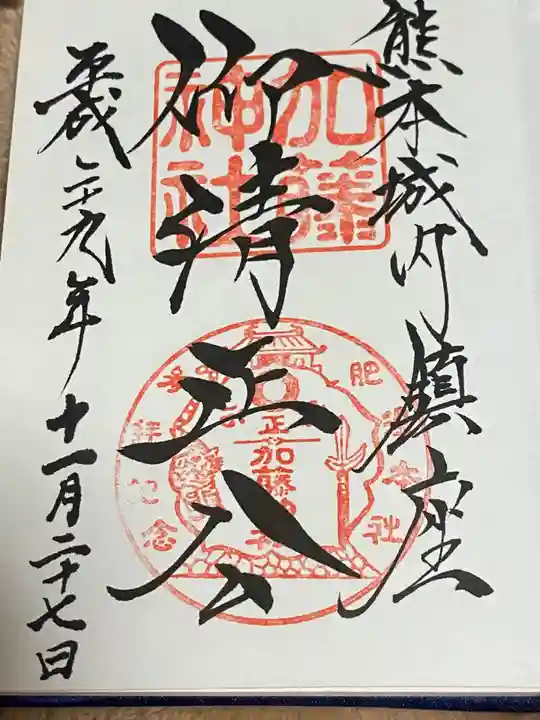 熊本城内鎮座
御清正公
平成二十九年十一月二十七日
加藤
神社
肥後本社
参拝記念
正
加藤神社